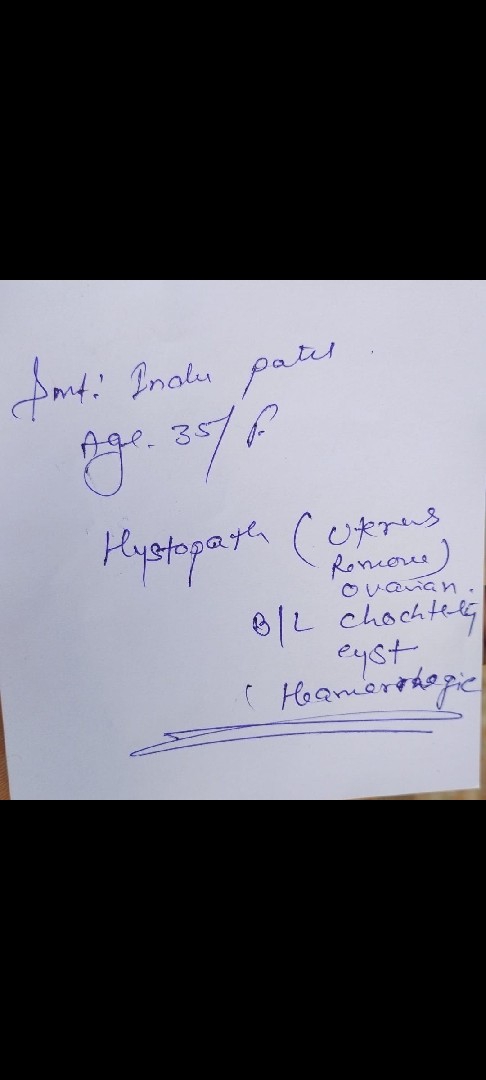 Smt: Indu patel
Age. 35/F.
Hystopath (Uterus
Remove)
ovarian.
B/L
cyst
(Heamorrhagic